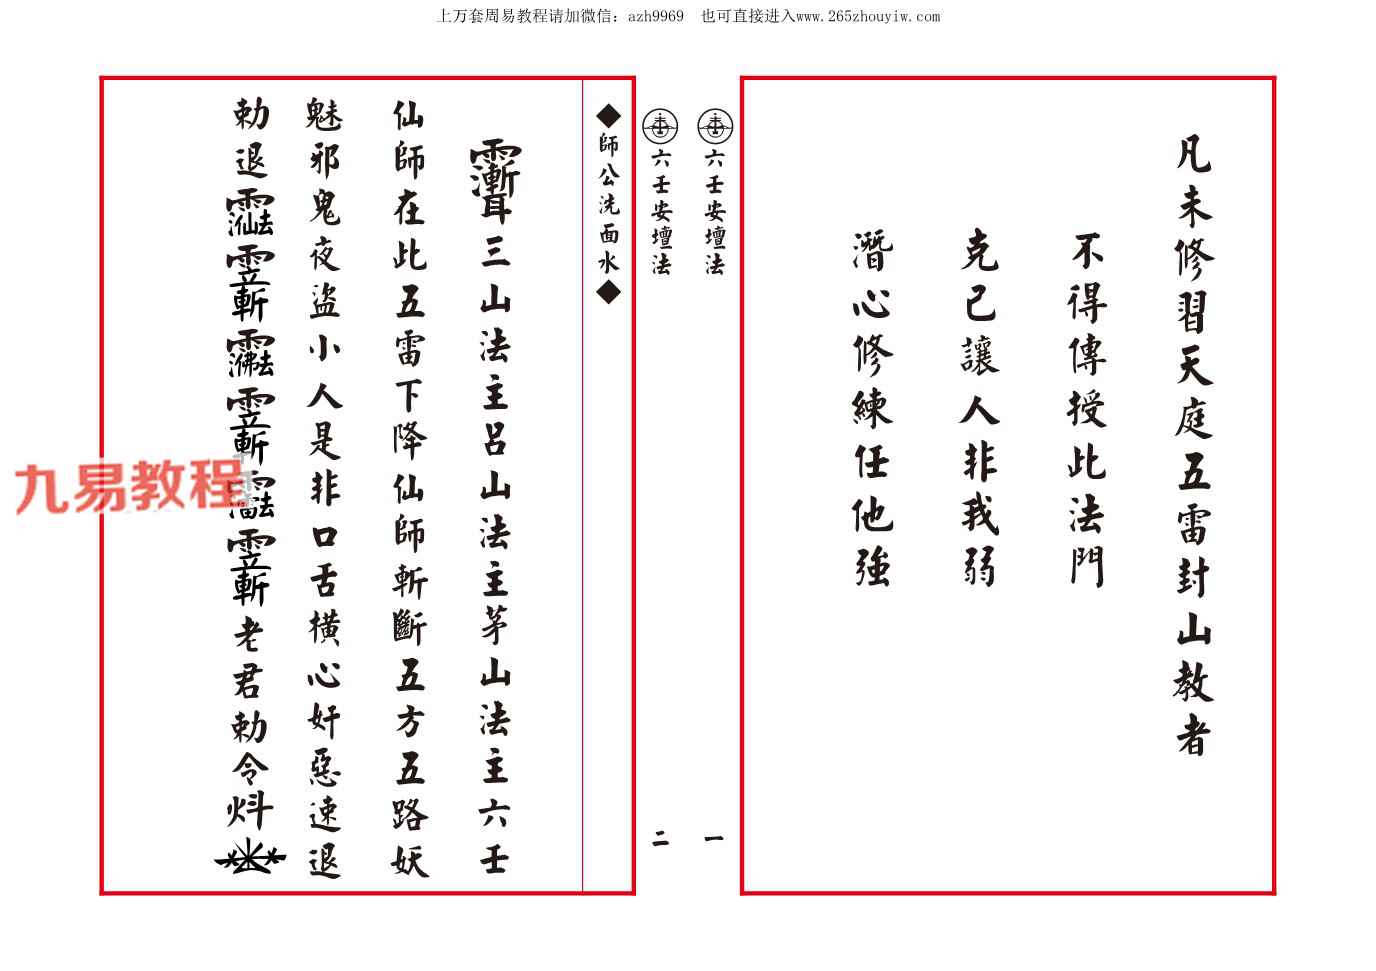 上万套周易教程请加微信：azh9969 也可直接进入www.265zhouyiw.com
凡未修習天庭五雷封山教者
不得傳授此法門
克己讓人非我弱
潛心修練任他強
六壬安壇法 一
六壬安壇法 二
◆師公洗面水◆
三山法主呂山法主茅山法主六壬
仙師在此五雷下降仙師斬斷五方五路妖
魅邪鬼夜盜小人是非口舌橫心奸惡速退
勅退
老君勅令炓
九易教程